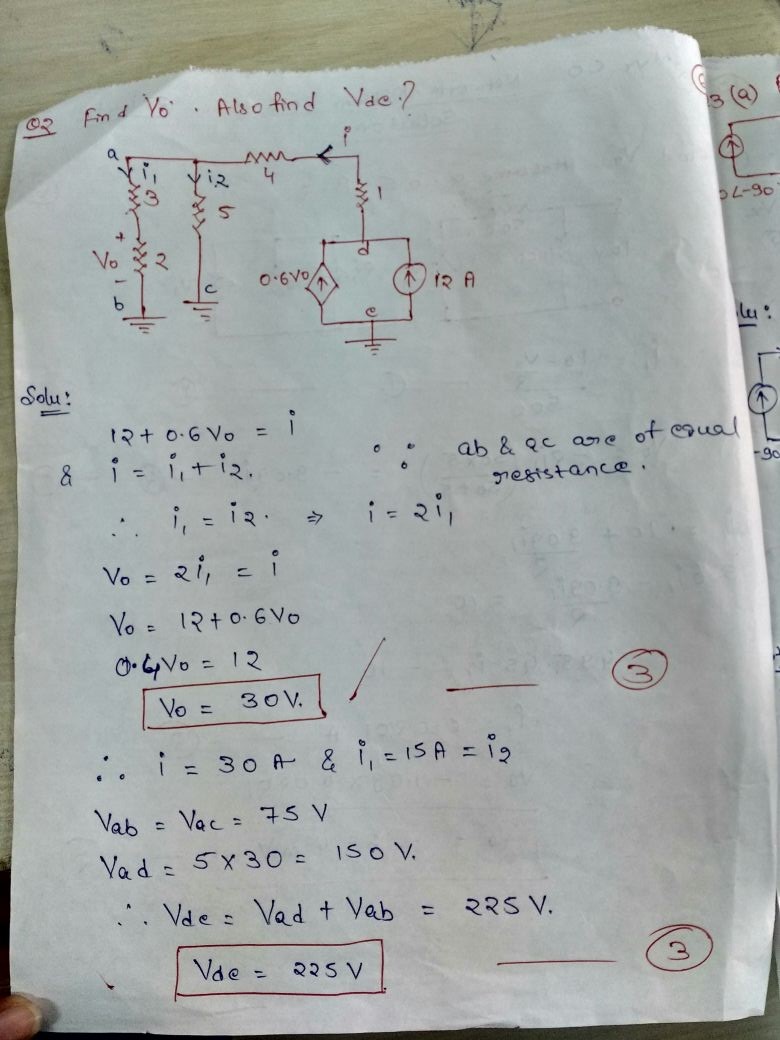 Q2 Find Vo. Also find Vde?
a i1 i2 4 i
3 5 1
+ Vo - 2 0.6Vo d 12 A
b c e
Solu:
12 + 0.6Vo = i
& i = i1 + i2. ∵ ab & ac are of equal resistance.
∴ i1 = i2. ⇒ i = 2i1
Vo = 2i1 = i
Vo = 12 + 0.6Vo
0.4Vo = 12
Vo = 30V.
3
∴ i = 30 A & i1 = 15A = i2
Vab = Vac = 75 V
Vad = 5 x 30 = 150 V.
∴ Vde = Vad + Vab = 225 V.
Vde = 225 V
3
3 (a)
0∠-90
lu:
-90